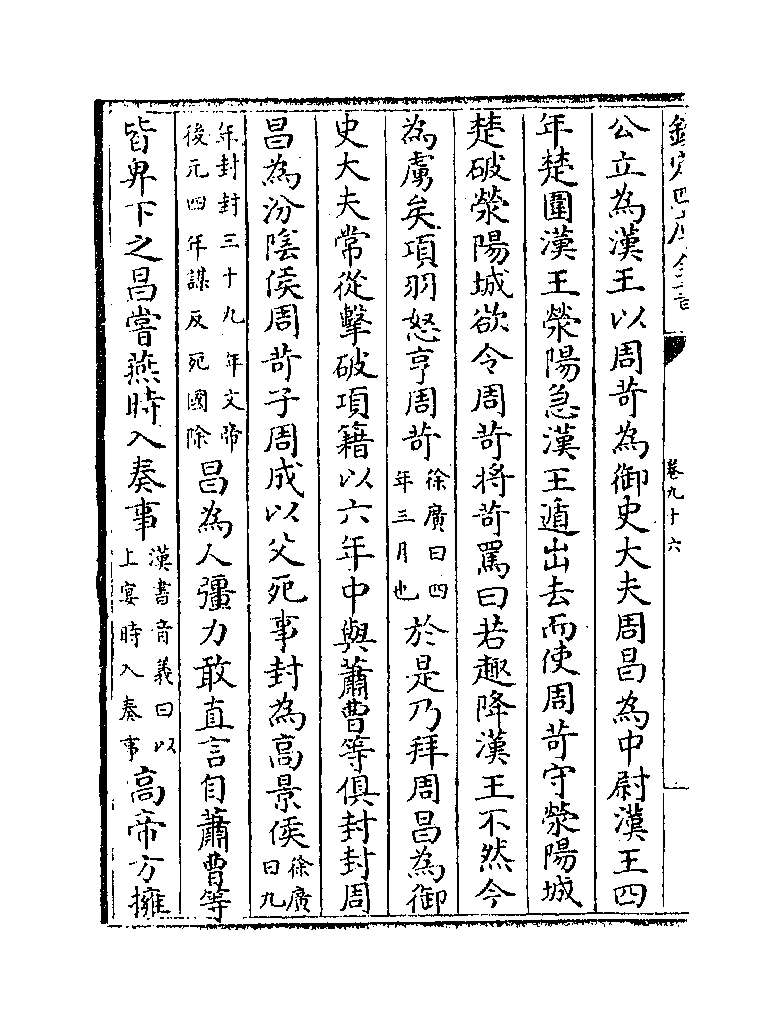 欽定四庫全書
卷九十六
公立為漢王以周苛為御史大夫周昌為中尉漢王四
年楚圍漢王滎陽急漢王遁出去而使周苛守滎陽城
楚破滎陽城欲令周苛將苛罵曰若趣降漢王不然今
為虜矣項羽怒亨周苛徐廣曰四年三月也於是乃拜周昌為御
史大夫常從擊破項籍以六年中與蕭曹等俱封封周
昌為汾陰侯周苛子周成以父死事封為高景侯徐廣曰九
年封封三十九年文帝後元四年謀反死國除昌為人彊力敢直言自蕭曹等
皆卑下之昌嘗燕時入奏事漢書音義曰以上宴時入奏事高帝方擁